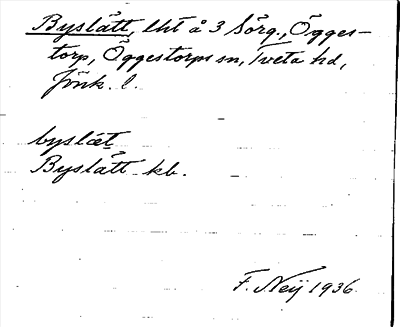 Byslätt, lht å 3 Sörg., Ögges-
torp, Öggestorps sn, Tveta hd,
Jönk. l.
byslæt
Byslätt kb.
F. Neij 1936